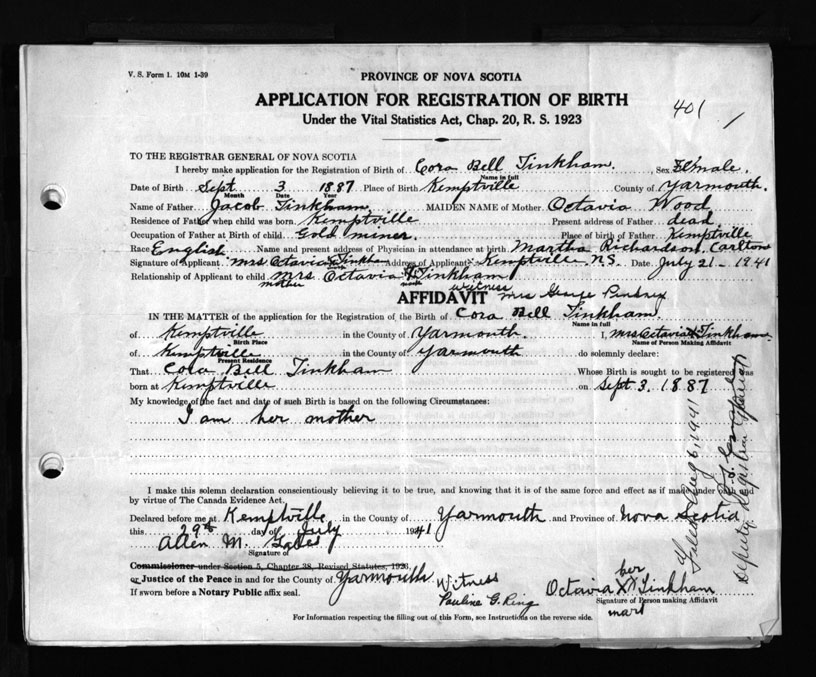 V. S. Form 1. 10M 1-39
PROVINCE OF NOVA SCOTIA
APPLICATION FOR REGISTRATION OF BIRTH
Under the Vital Statistics Act, Chap. 20, R. S. 1923
401
TO THE REGISTRAR GENERAL OF NOVA SCOTIA
I hereby make application for the Registration of Birth of Cora Bell Tinkham. Sex Female.
Name in full
Date of Birth Sept 3 1887 Place of Birth Kemptville County of Yarmouth.
Month Date Year
Name of Father Jacob Tinkham MAIDEN NAME of Mother Octavia Wood
Residence of Father when child was born Kemptville Present address of Father dead
Occupation of Father at Birth of child Gold miner. Place of birth of Father Kemptville
Race English Name and present address of Physician in attendance at birth Martha Richardson, Carlton
Signature of Applicant Mrs Octavia X Tinkham Address of Applicant Kemptville N.S. Date July 21 - 1941
Relationship of Applicant to child Mrs Octavia X Tinkham
mother
witness
AFFIDAVIT Mrs George
IN THE MATTER of the application for the Registration of the Birth of Cora Bell Tinkham.
Name in full
of Kemptville in the County of Yarmouth. I, Mrs Octavia X Tinkham
Birth Place
Name of Person Making Affidavit
of Kemptville in the County of Yarmouth do solemnly declare:
Present Residence
That Cora Bell Tinkham Whose Birth is sought to be registered was
born at Kemptville on Sept 3. 1887
My knowledge of the fact and date of such Birth is based on the following Circumstances:
I am her mother
I make this solemn declaration conscientiously believing it to be true, and knowing that it is of the same force and effect as if made under oath and
by virtue of The Canada Evidence Act.
Declared before me at Kemptville in the County of Yarmouth and Province of Nova Scotia
this 29th day of July 1941
Allen M.
Signature of
Commissioner under Section 5, Chapter 38, Revised Statutes, 1923
or Justice of the Peace in and for the County of Yarmouth
If sworn before a Notary Public affix seal.
Witness
Pauline G. Ring
her
Octavia X Tinkham
Signature of Person making Affidavit
mark
For Information respecting the filling out of this Form, see Instructions on the reverse side.
Filed Aug 6, 1941
Deputy Registrar General